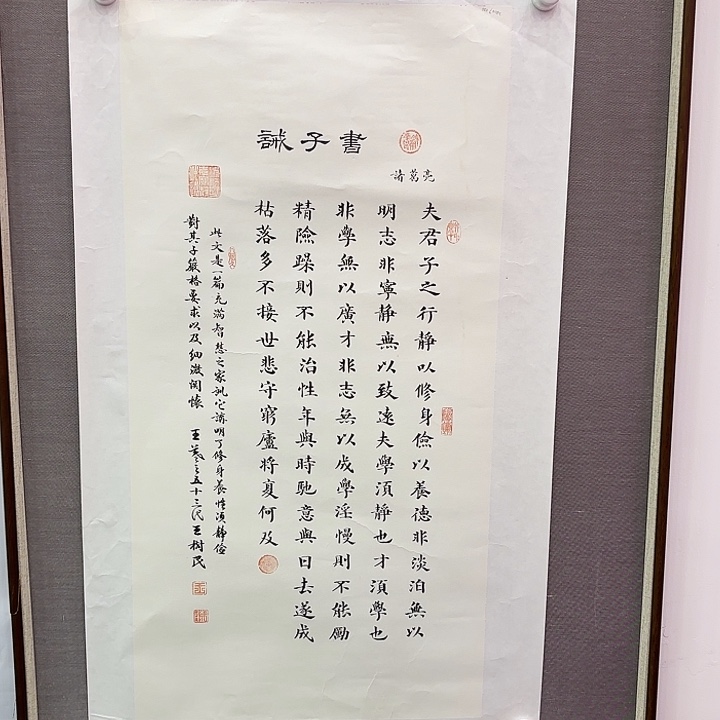 誡子書
諸葛亮
夫君子之行靜以修身儉以養德非淡泊無以
明志非寧靜無以致遠夫學須靜也才須學也
非學無以廣才非志無以成學淫慢則不能勵
精險躁則不能治性年與時馳意與日去遂成
枯落多不接世悲守窮廬將复何及
此文是一篇充滿智慧之家訓它講明了修身養性須靜儉
對其子嚴格要求以及細微關懷 王羲之五十三代王樹民